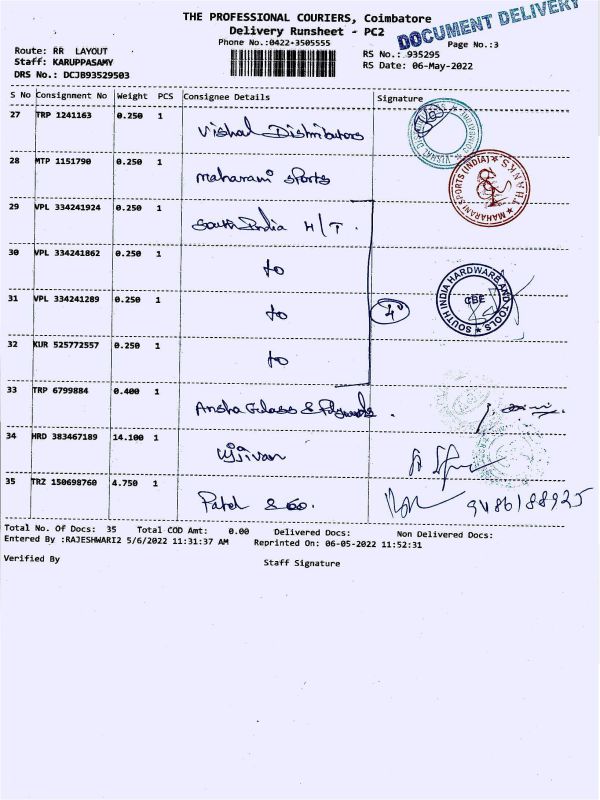 THE PROFESSIONAL COURIERS, Coimbatore
Delivery Runsheet - PC2
DOCUMENT DELIVERY
Phone No.:0422-3505555
Page No.:3
Route: RR LAYOUT
RS No.: 935295
Staff: KARUPPASAMY
RS Date: 06-May-2022
DRS No.: DCJB93529503
S No Consignment No Weight PCS Consignee Details Signature
27 TRP 1241163 0.250 1 Vishal Distributors
28 MTP 1151790 0.250 1 Maharani Sports
MAHARANI SPORTS (INDIA)
29 VPL 334241924 0.250 1 South India H/T.
30 VPL 334241862 0.250 1 to
SOUTH INDIA HARDWARE AND TOOLS
CBE
31 VPL 334241289 0.250 1 to 4
32 KUR 525772557 0.250 1 to
33 TRP 6799884 0.400 1 Ansha Glass & Plywoods.
34 HRD 383467189 14.100 1 Ujjivan
35 TR2 150698760 4.750 1 Patel & Co. 9486188925
Total No. Of Docs: 35 Total COD Amt: 0.00 Delivered Docs: Non Delivered Docs:
Entered By :RAJESHWARI2 5/6/2022 11:31:37 AM Reprinted On: 06-05-2022 11:52:31
Verified By Staff Signature